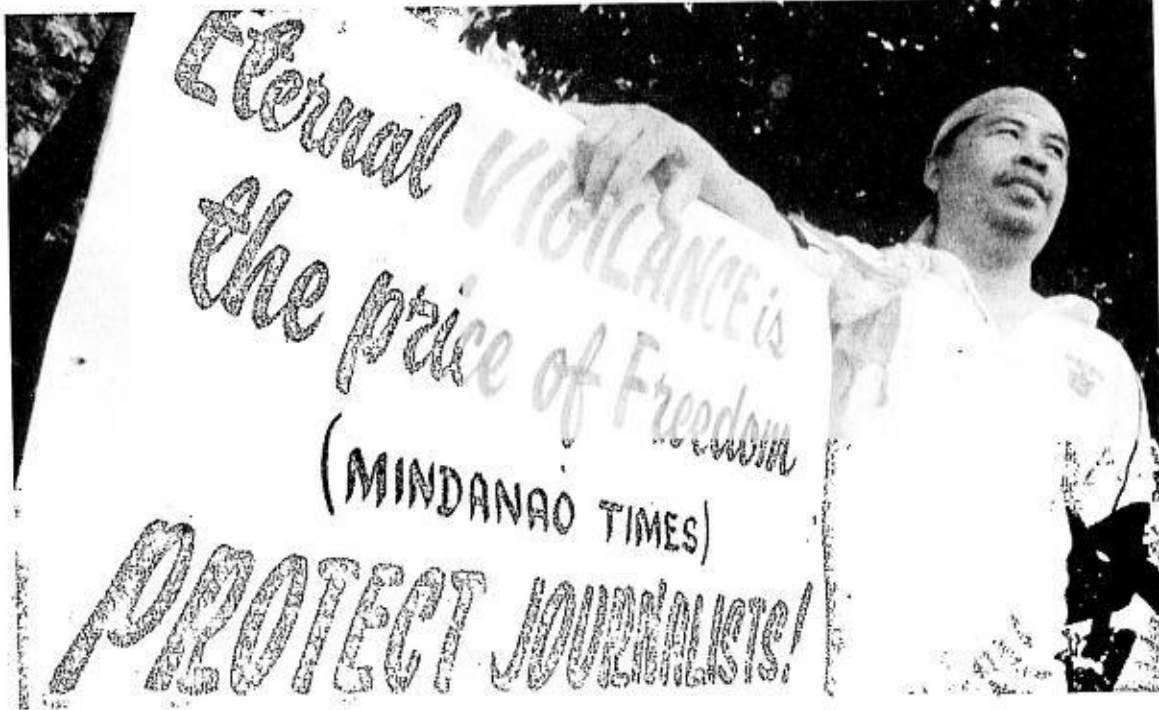 Eternal VIGILANCE is
the price of Freedom
(MINDANAO TIMES)
PROTECT JOURNALISTS!